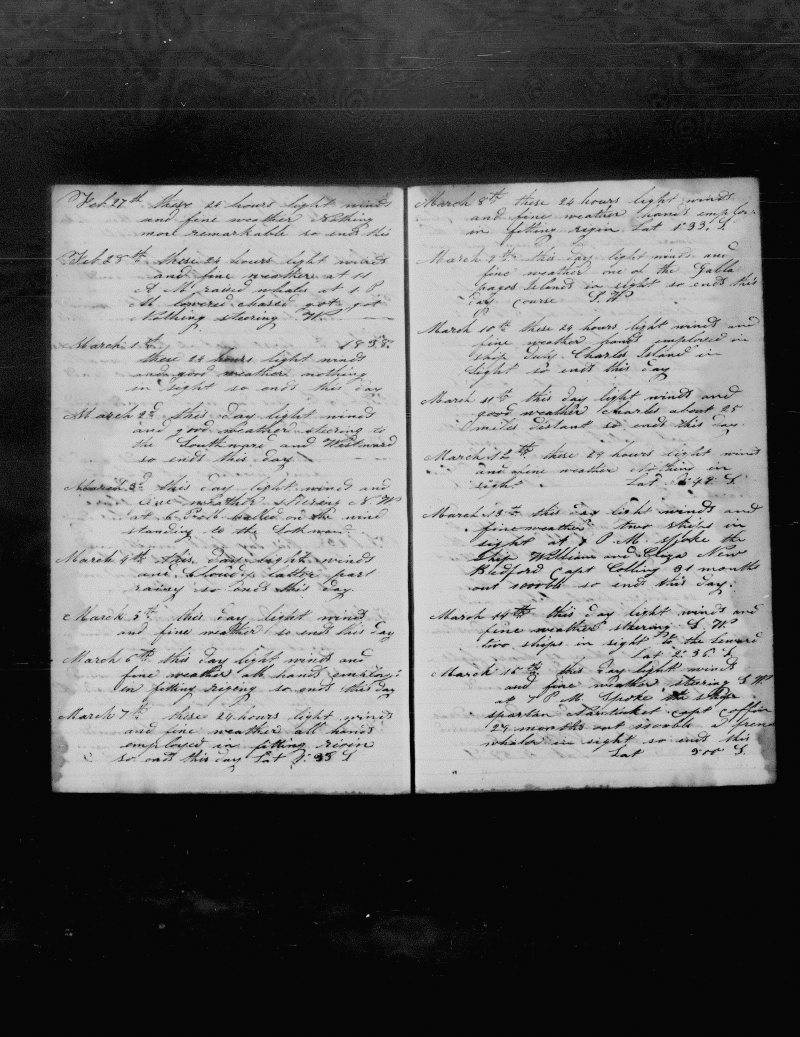 Feb 27th these 24 hours light winds
and fine weather Nothing
more remarkable so ends this
Feb 28th these 24 hours light winds
and fine weather at 11
A M raised whales at 1 P
M lowered chased got got
Nothing steering W
March 1st 1838
these 24 hours light winds
and good weather nothing
in sight so ends this day
March 2d this day light winds
and good weather steering to
the Southward and Westward
so ends this day
March 3d this day light wind and
fine weather stering N W
at 6 Pock on the wind
standing to the
March 4th this day light winds
and cloudy latter part
rainy so ends this day
March 5th this day light winds
and fine weather so ends this day
March 6th this day light winds and
fine weather all hands
in fitting so ends this day
March 7th these 24 hours light winds
and fine weather all hands
employed in fitting
so ends this day Lat 1:33 S
March 8th these 24 hours light winds
and fine weather hands
in fitting rigin Lat 1:33, S
March 9th this day light winds and
fine weather one of the Galla
pagos Islands in sight so ends this
day course S W
March 10th these 24 hours light winds and
fine weather hands employed in
ship duty Charles Island in
sight so ends this day
March 11th this day light winds and
good weather Charles about 25
miles distant so ends this day
March 12th these 24 hours light wind
and fine weather Nothing in
sight Lat S
March 13th this day light winds and
fine weather two ships in
sight at P. M. spoke the
Ship William and Eliza New
Bedford capt 31 months
out so ends this day.
March 14th this day light winds and
fine weather steering S. W
two ships in sight to the leward
Lat 2:35 S
March 15th this day light winds
and fine weather steering S W
at 7 P M. Spoke the ship
spartan Nantucket capt coffin
29 months out a
whaler in sight so ends this
Lat S.